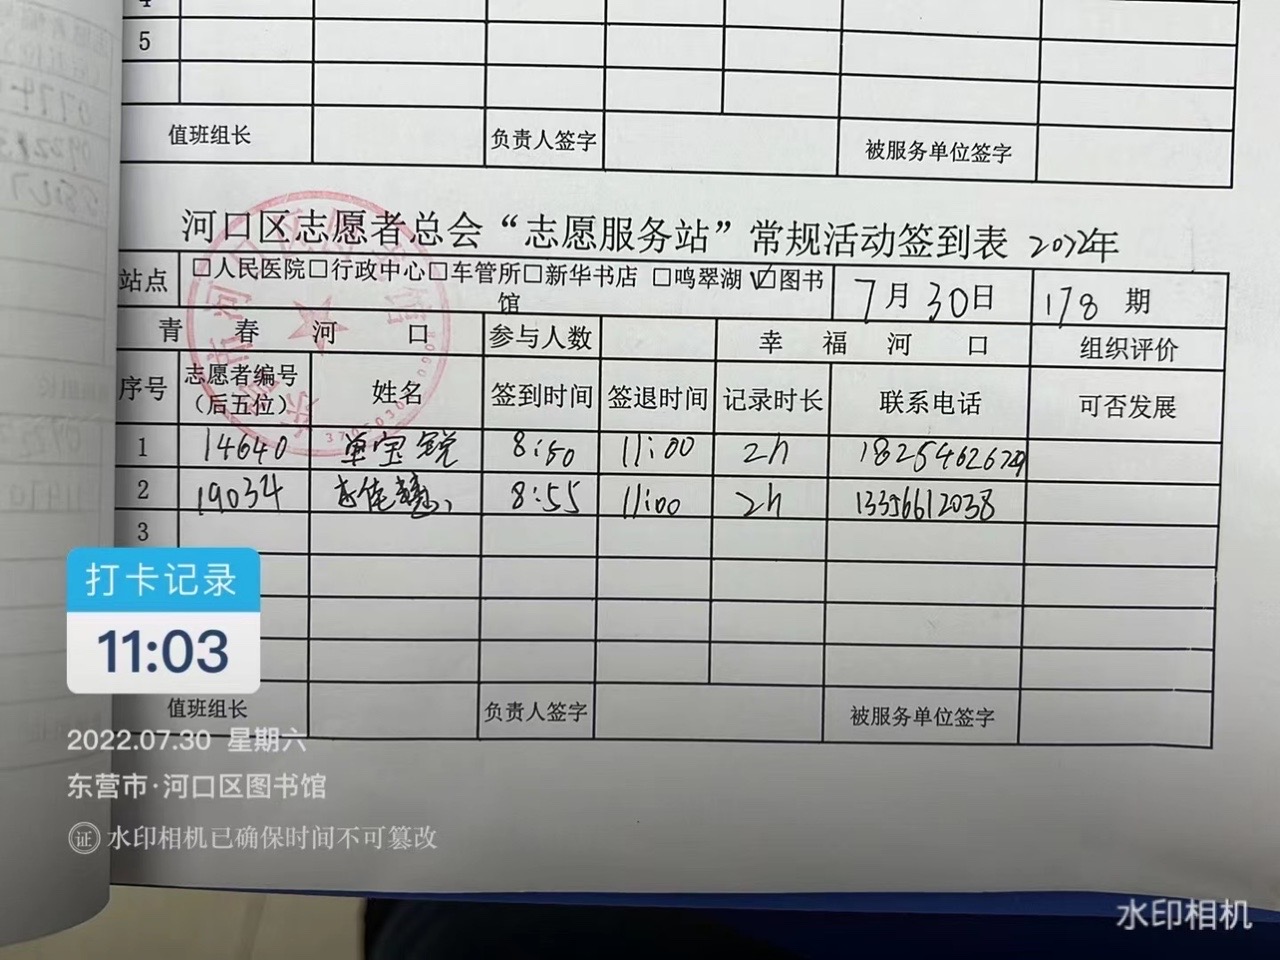 5
值班组长 负责人签字 被服务单位签字
河口区志愿者总会“志愿服务站”常规活动签到表 2022年
站点 □人民医院□行政中心□车管所□新华书店 □鸣翠湖 ☑图书馆 7月30日 178 期
青春河口 参与人数 幸福河口 组织评价
序号 志愿者编号（后五位） 姓名 签到时间 签退时间 记录时长 联系电话 可否发展
1 14640 单宝锐 8:50 11:00 2h 18254626729
2 19034 8:55 11:00 2h 13356612038
3
值班组长 负责人签字 被服务单位签字
打卡记录
11:03
2022.07.30 星期六
东营市·河口区图书馆
证 水印相机已确保时间不可篡改
水印相机